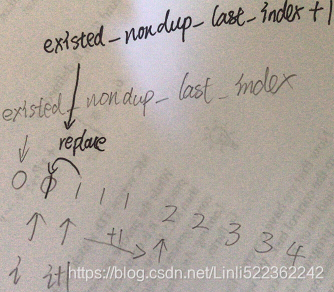 existed_nondup_last_index+1
existed_nondup_last_index
replace
0 0 1 1 1 2 2 3 3 4
+1
i i+1
https://blog.csdn.net/Linli522362242